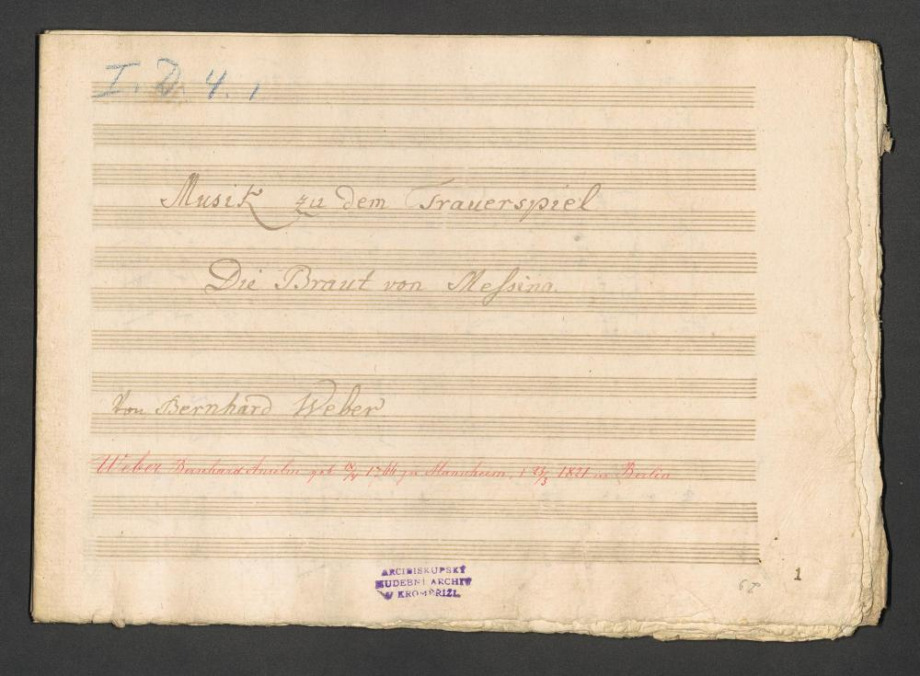 I. D. 4. 1
Musik zu dem Trauerspiel
Die Braut von Messina.
Von Bernhard Weber
Weber Bernhard Anselm geb 1766 zu Mannheim, † 23/3 1821 in Berlin
ARCIBISKUPSKÝ
HUDEBNÍ ARCHIV
V KROMĚŘÍŽI.
1